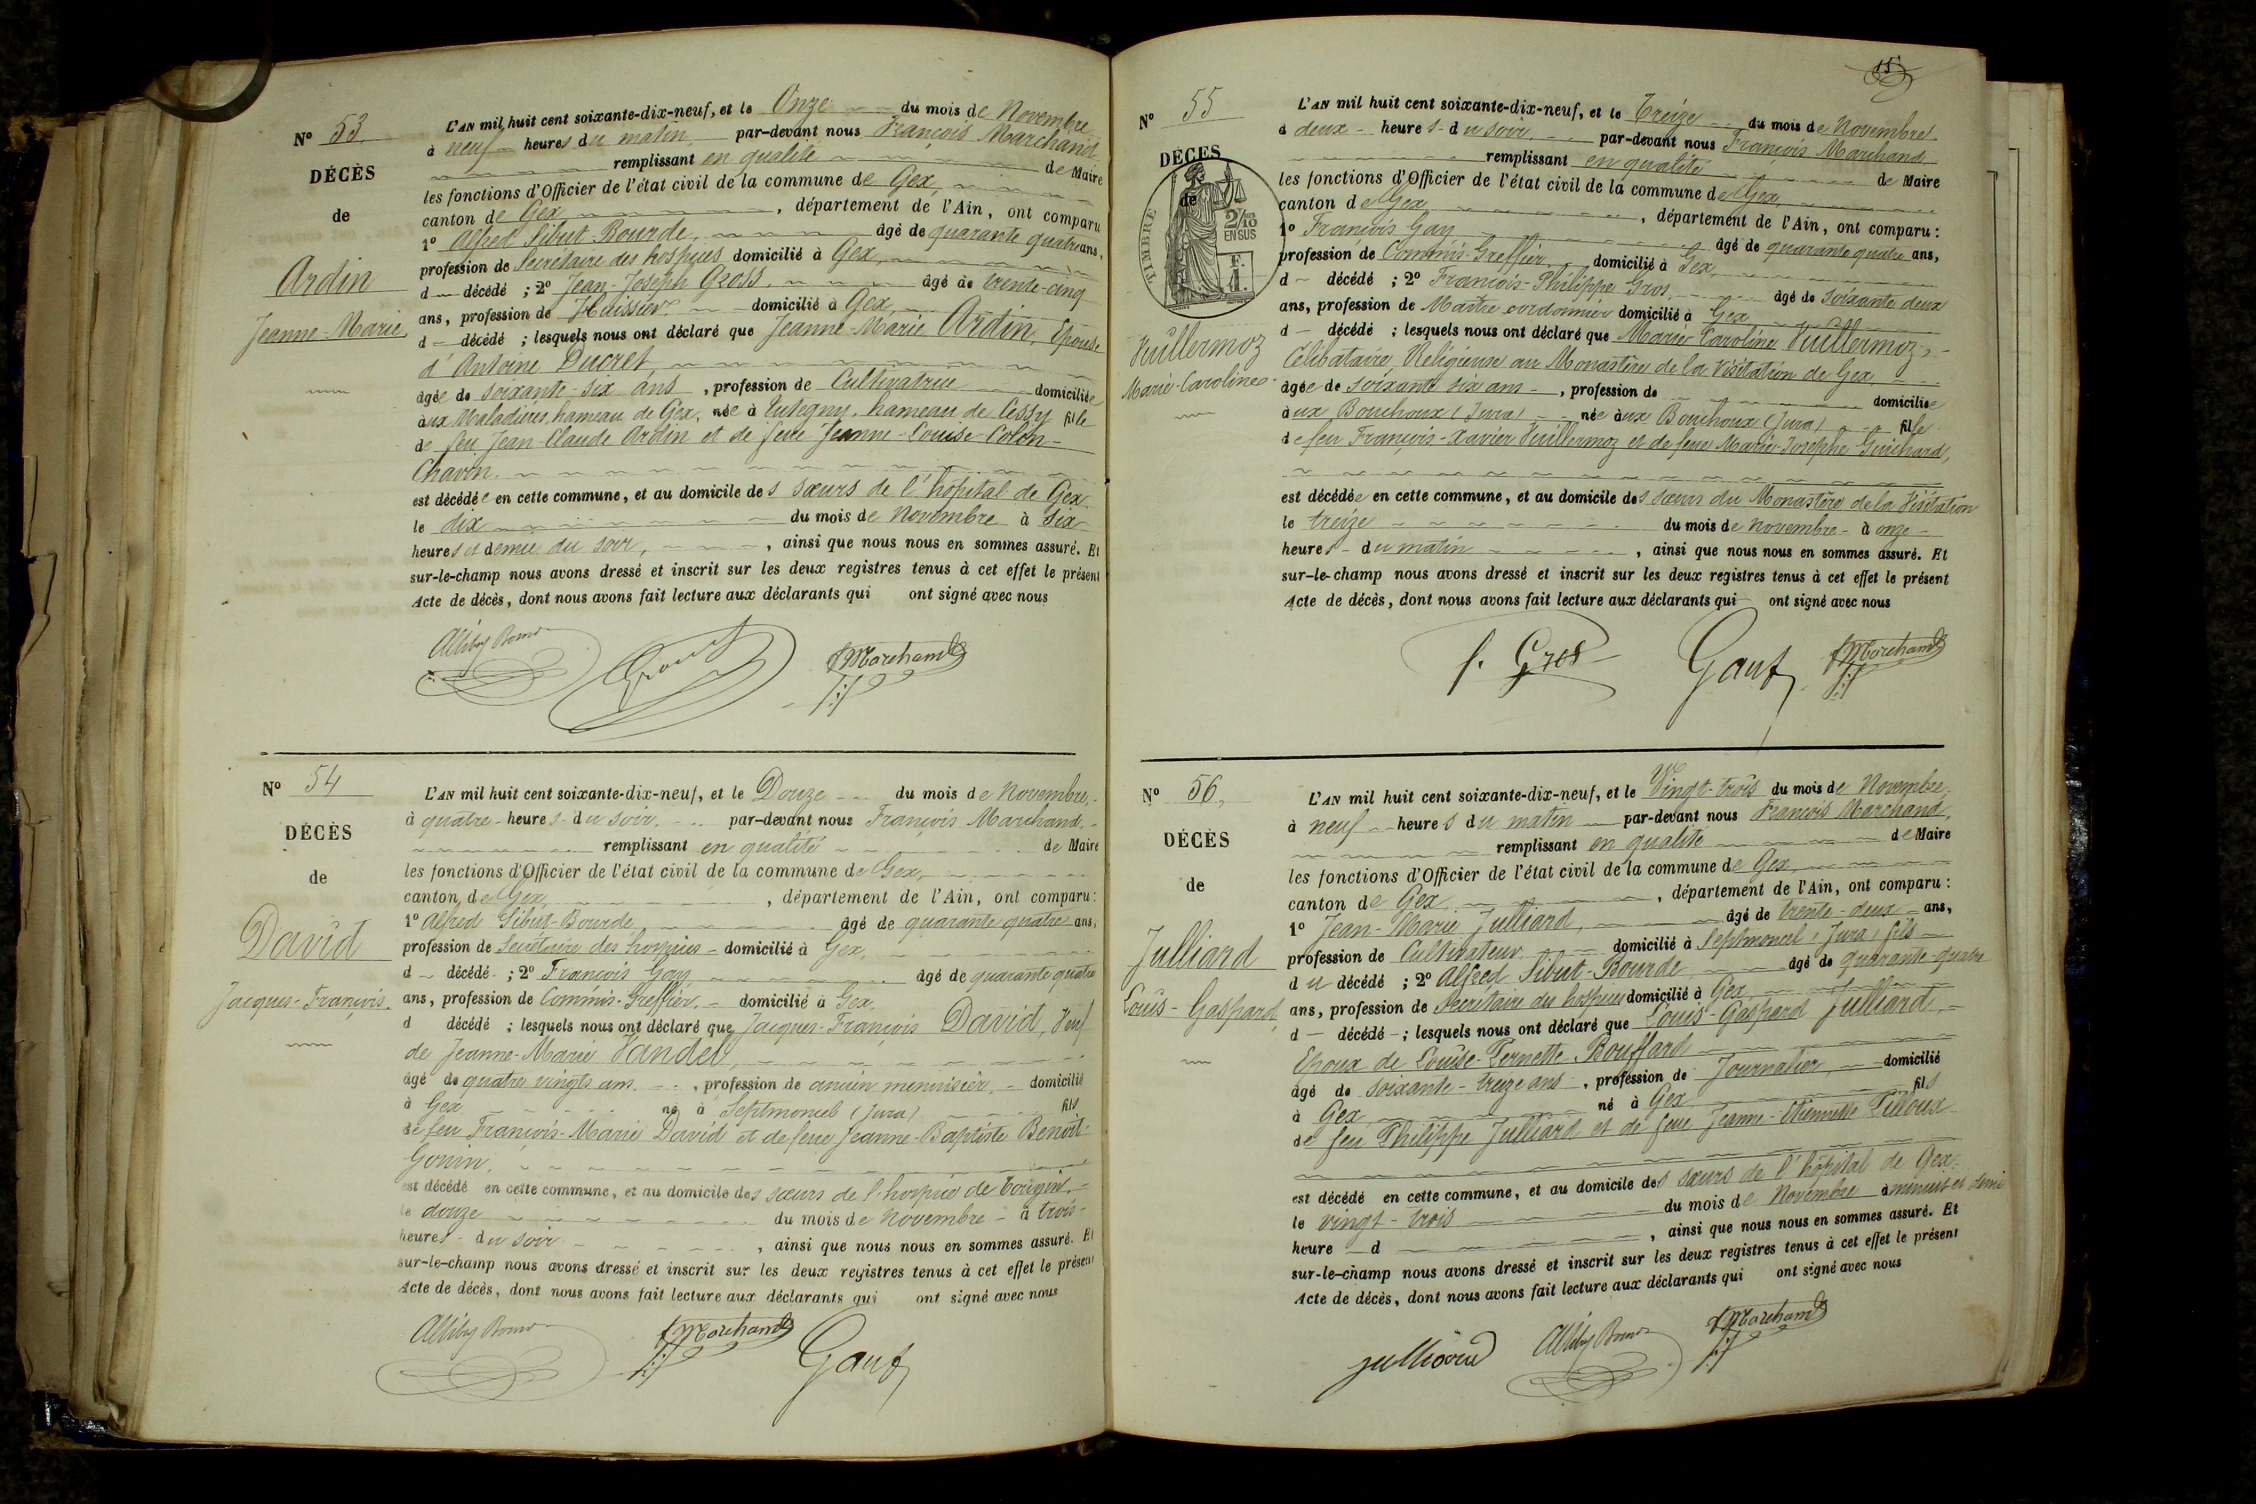 Nº 53
DÉCÈS
de
Ardin
Jeanne-Marie
L'AN mil huit cent soixante-dix-neuf, et le Onze du mois de Novembre
à neuf heures du matin par-devant nous François Marchand
remplissant en qualité de Maire
les fonctions d'Officier de l'état civil de la commune de Gex,
canton de Gex, département de l'Ain, ont comparu
1º Alfred Sibut Bourde, âgé de quarante quatre ans,
profession de Secrétaire des hospices domicilié à Gex,
d décédé ; 2º Jean-Joseph Gross, âgé de trente-cinq
ans, profession de Huissier, domicilié à Gex,
d décédé ; lesquels nous ont déclaré que Jeanne-Marie Ardin, Epouse
d'Antoine Ducret,
âgée de soixante-six ans, profession de Cultivatrice domiciliée
aux Maladières, hameau de Gex, née à Tutegny, hameau de Cessy fille
de feu Jean-Claude Ardin et de feue Jeanne-Louise Colon-
Chavin.
est décédée en cette commune, et au domicile des sœurs de l'hôpital de Gex
le dix du mois de Novembre à six
heures et demie du soir, ainsi que nous nous en sommes assuré. Et
sur-le-champ nous avons dressé et inscrit sur les deux registres tenus à cet effet le présent
Acte de décès, dont nous avons fait lecture aux déclarants qui ont signé avec nous
Marchand
Nº 54
DÉCÈS
de
David
Jacques-François
L'AN mil huit cent soixante-dix-neuf, et le Douze du mois de Novembre,
à quatre heures du soir par-devant nous François Marchand,
remplissant en qualité de Maire
les fonctions d'Officier de l'état civil de la commune de Gex,
canton de Gex, département de l'Ain, ont comparu:
1º Alfred Sibut-Bourde, âgé de quarante quatre ans,
profession de Secrétaire des hospices domicilié à Gex,
d décédé ; 2º François Gay âgé de quarante quatre
ans, profession de Commis-Greffier, domicilié à Gex,
d décédé ; lesquels nous ont déclaré que Jacques-François David, Veuf
de Jeanne-Marie Vandel,
âgé de quatre vingts ans, profession de ancien menuisier, domicilié
à Gex né à Septmoncel (Jura) fils
de feu François-Marie David et de feue Jeanne-Baptiste Benoit-
Gonin,
est décédé en cette commune, et au domicile des sœurs de l'hospice de Tougin,
le douze du mois de Novembre à trois
heures du soir, ainsi que nous nous en sommes assuré. Et
sur-le-champ nous avons dressé et inscrit sur les deux registres tenus à cet effet le présent
Acte de décès, dont nous avons fait lecture aux déclarants qui ont signé avec nous
Marchand
15
Nº 55
DÉCES
de
TIMBRE
2/10
EN SUS
Vuillermoz
Marie-Caroline
L'AN mil huit cent soixante-dix-neuf, et le Treize du mois de Novembre
à deux heures du soir par-devant nous François Marchand
remplissant en qualité de Maire
les fonctions d'Officier de l'état civil de la commune de Gex,
canton de Gex, département de l'Ain, ont comparu :
1º François Gay âgé de quarante quatre ans,
profession de Commis-Greffier, domicilié à Gex,
d décédé ; 2º François-Philippe Gros, âgé de soixante deux
ans, profession de Maître cordonnier domicilié à Gex
d décédé ; lesquels nous ont déclaré que Marie Caroline Vuillermoz,
Célibataire, Religieuse au Monastère de la Visitation de Gex
âgée de soixante six ans, profession de domiciliée
aux Bouchoux (Jura) née aux Bouchoux (Jura) fille
de feu François-Xavier Vuillermoz et de feue Marie-Josephe Guichard,
est décédée en cette commune, et au domicile des sœurs du Monastère de la Visitation
le treize du mois de novembre à onze
heures du matin, ainsi que nous nous en sommes assuré. Et
sur-le-champ nous avons dressé et inscrit sur les deux registres tenus à cet effet le présent
Acte de décès, dont nous avons fait lecture aux déclarants qui ont signé avec nous
f. Gros Marchand
Nº 56,
DÉCÈS
de
Julliard
Louis-Gaspard
L'AN mil huit cent soixante-dix-neuf, et le Vingt-trois du mois de Novembre,
à neuf heures du matin par-devant nous François Marchand,
remplissant en qualité de Maire
les fonctions d'Officier de l'état civil de la commune de Gex,
canton de Gex, département de l'Ain, ont comparu :
1º Jean-Marie Julliard, âgé de trente-deux ans,
profession de Cultivateur domicilié à Septmoncel, Jura, fils
du décédé ; 2º Alfred Sibut-Bourde âgé de quarante-quatre
ans, profession de Secrétaire des hospices domicilié à Gex
d décédé ; lesquels nous ont déclaré que Louis-Gaspard Julliard,
Epoux de Louise-Pernette Bouffard
âgé de soixante-treize ans, profession de Journalier, domicilié
à Gex, né à Gex fils
de feu Philippe Julliard et de feue Jeanne-Etiennette Pilloux
est décédé en cette commune, et au domicile des sœurs de l'hôpital de Gex
le vingt-trois du mois de Novembre à minuit et demie
heure d, ainsi que nous nous en sommes assuré. Et
sur-le-champ nous avons dressé et inscrit sur les deux registres tenus à cet effet le présent
Acte de décès, dont nous avons fait lecture aux déclarants qui ont signé avec nous
Julliard Marchand